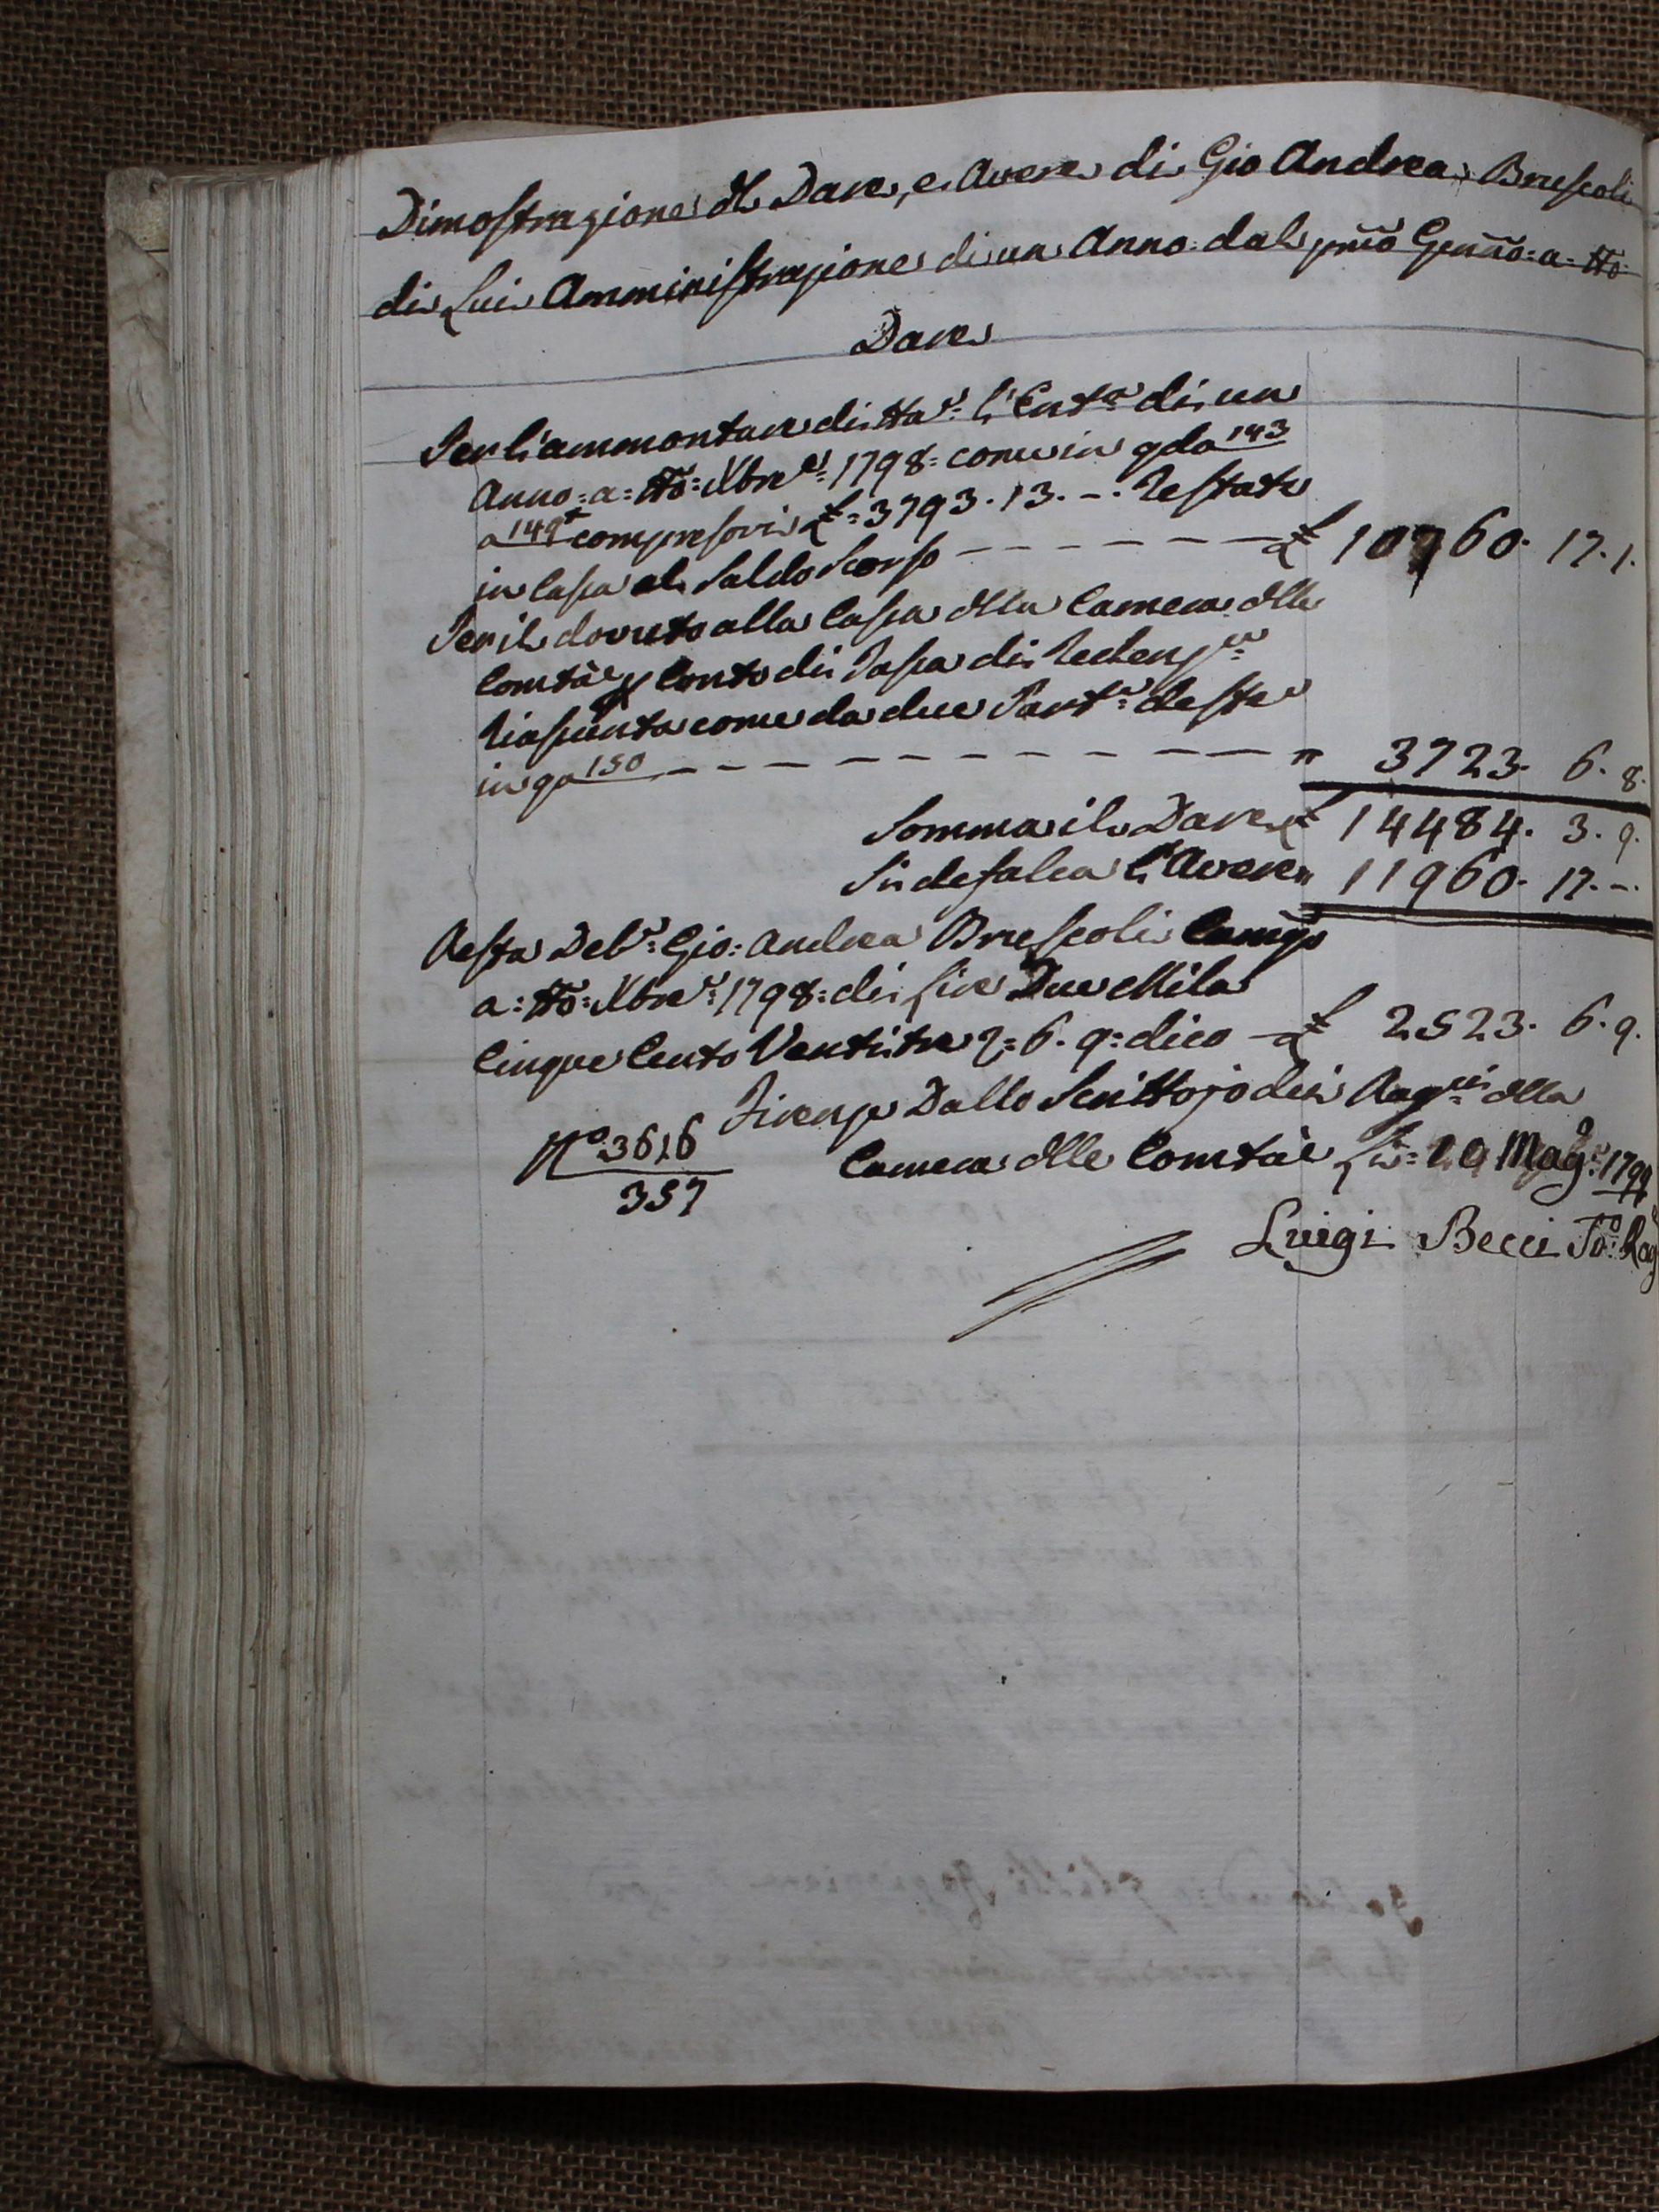 Dimostrazione dl Dare, e Avere di Gio Andrea Bruscoli
di Lui Amministrazione di un Anno dal pmo Genno: a: tto
Dare
Per l'ammontare di tta: l'Enta: di un
Anno: a: tto: Xbre: 1798: come in qda 143
a 149t compresovi £: 3793. 13. -. Restate
in Cassa al Saldo Scorso — — — £ 10760. 17. 1.
Per il dovuto alla Cassa dlla Camera dlle
Comtà p Conto di Tassa di Redenze:
Riassunta come da due Parte: deste
in qa 150 — — — " 3723. 6. 8.
Somma il Dare £ 14484. 3. 9.
Si defalca l'Avere " 11960. 17. -.
Resta Debre: Gio: Andrea Bruscoli Camgo
a: tto: Xbre: 1798: di Lire Due Mila
Cinque Cento Ventitre 2: 6. 9: dico — £ 2523. 6. 9.
Firenze Dallo Scrittojo dei Ragri: dlla
Camera dlle Comtà Li: 20 Mago: 1799
No. 3616
357
Luigi Becci Po: Rag